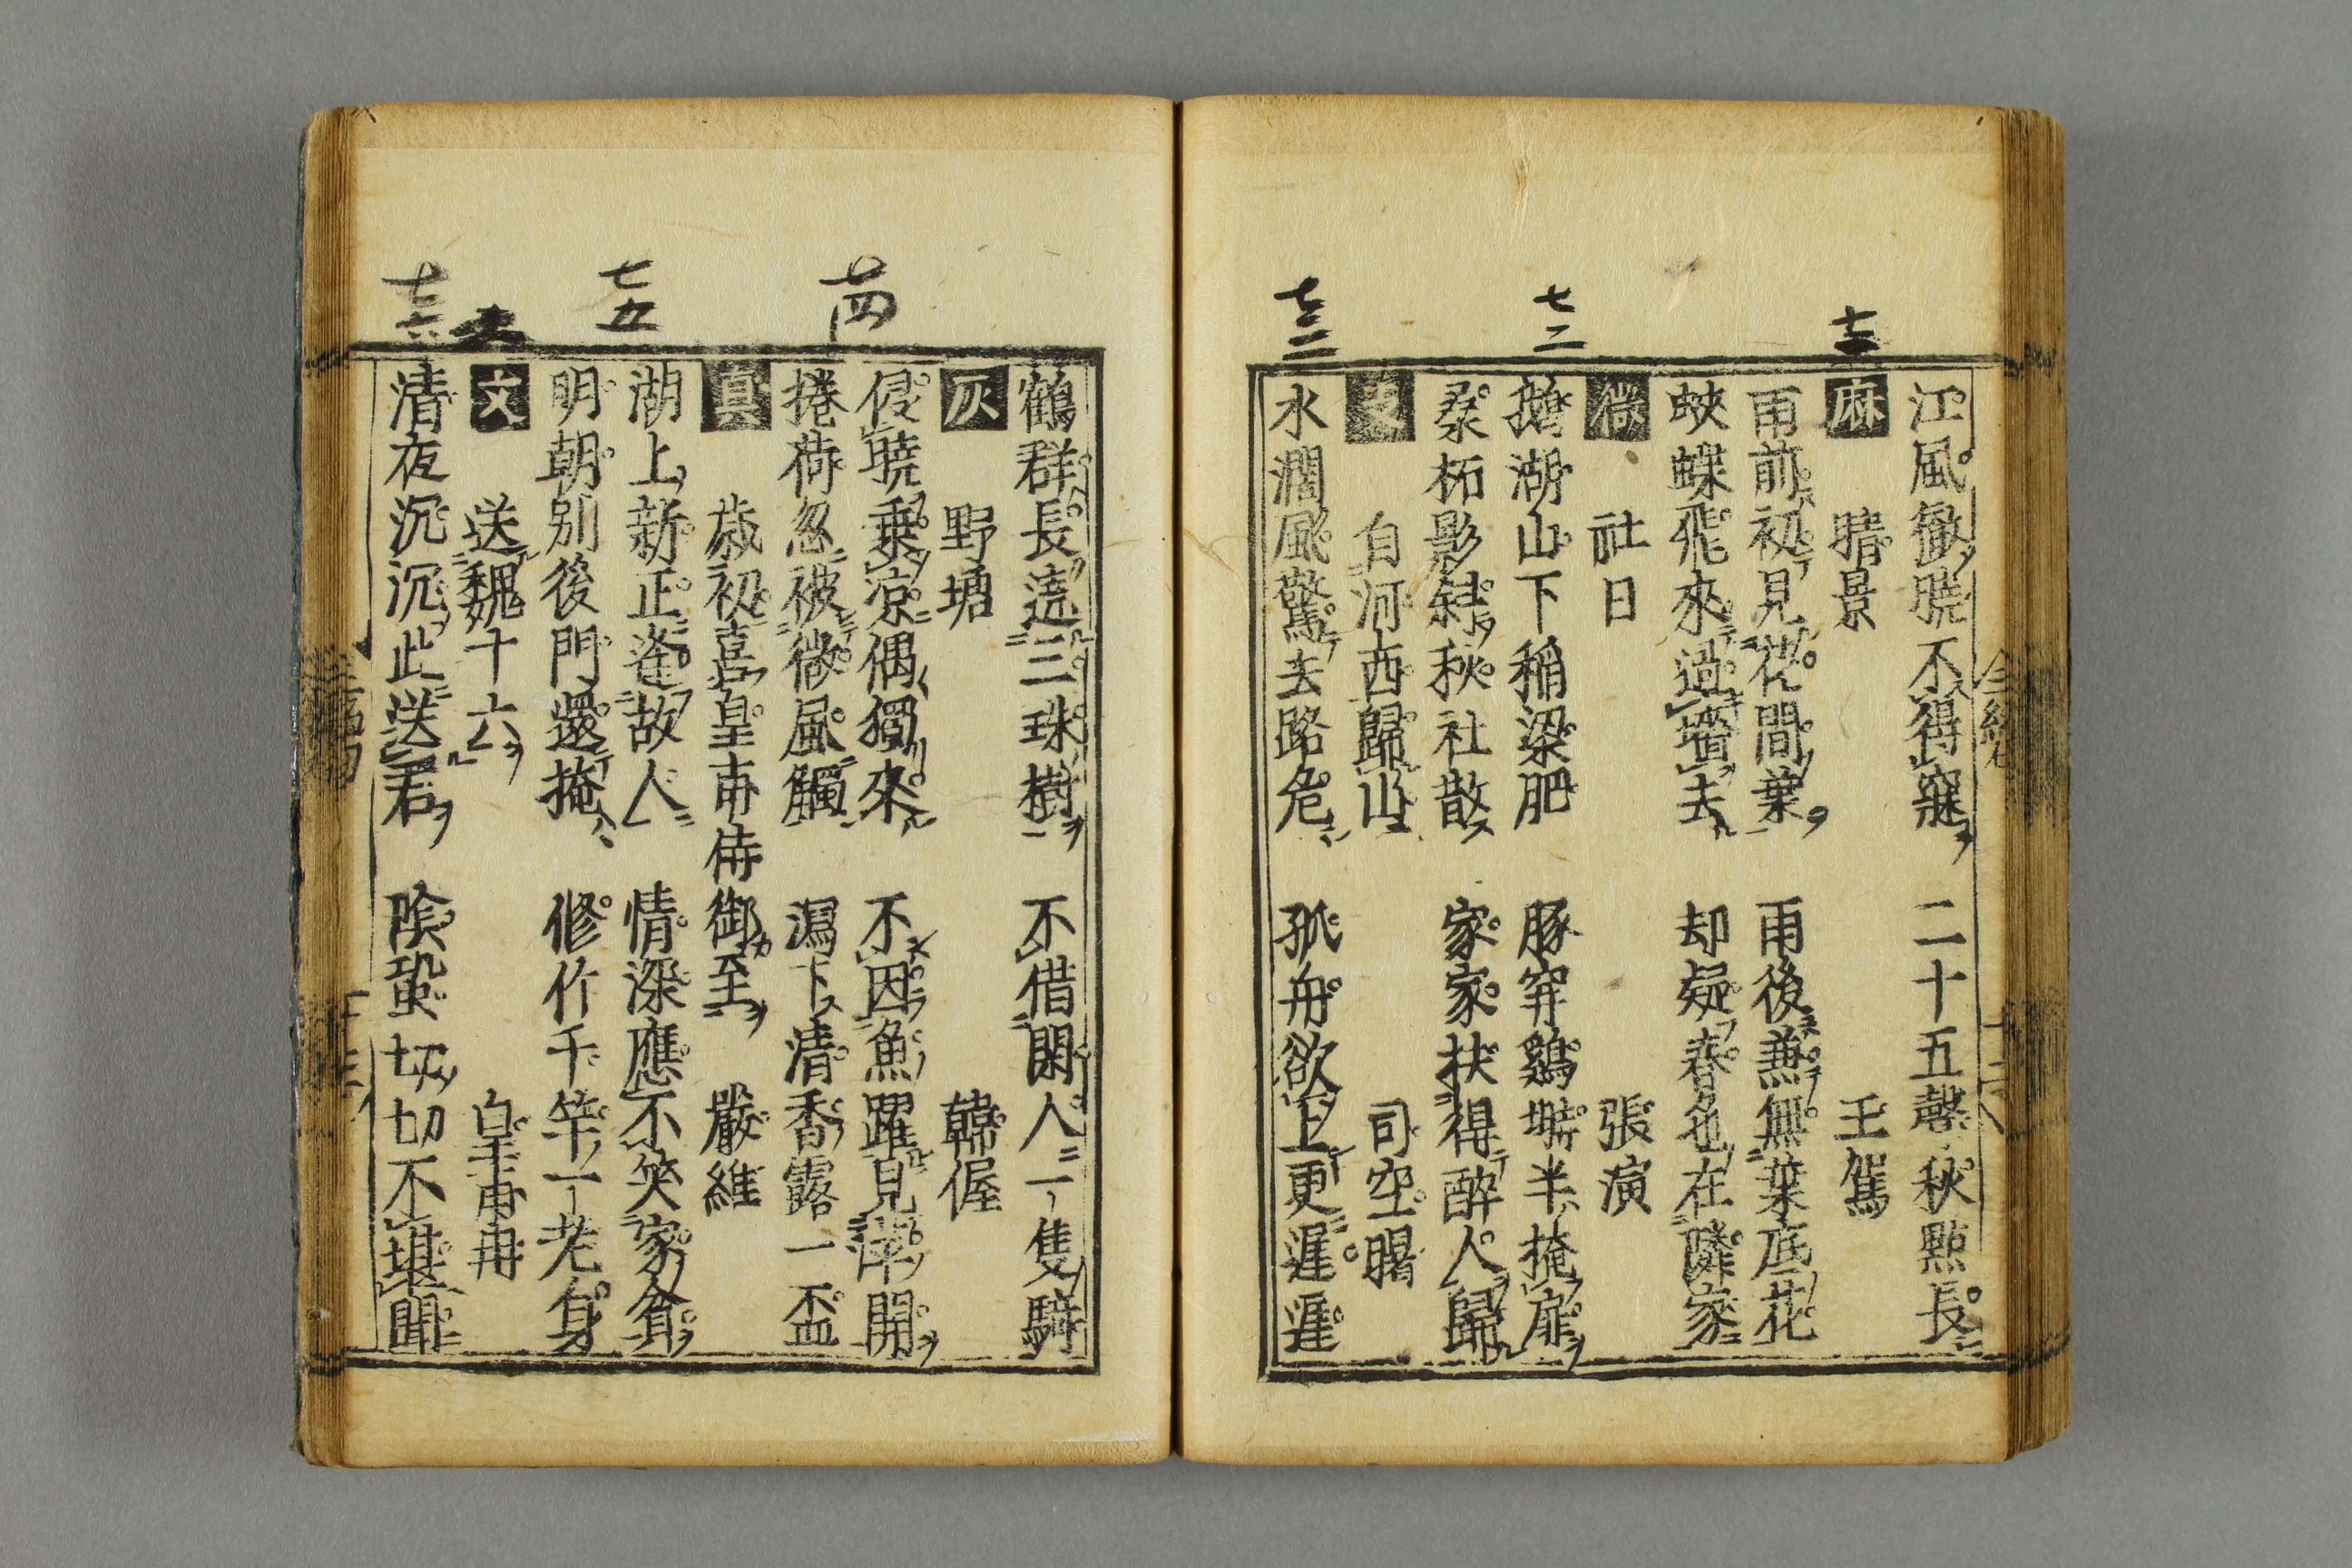 江風徹暁不得寐 二十五声秋點長
七十一
麻 晴景 王駕
雨前初見花間蘂 雨後兼無葉底花
蛺蝶飛來過墻去 却疑春色在隣家
七二
微 社日 張演
鵝湖山下稲粱肥 豚穽鷄塒半掩扉
桑柘影斜秋社散 家家扶得醉人歸
七三
自河西歸山 司空曙
水濶風驚去路危 孤舟欲上更遲遲
鶴群長遶三珠樹 不借閑人一隻騎
七四
灰 野塘 韓偓
侵暁乗凉偶獨來 不因魚躍見萍開
捲荷忽被微風觸 瀉下清香露一盃
七五
真 歳初喜皇甫侍御至 嚴維
湖上新正逢故人 情深應不笑家貧
明朝別後門還掩 修竹千竿一老身
七六
文 送魏十六 皇甫冉
清夜沉沉此送君 陰蛩切切不堪聞